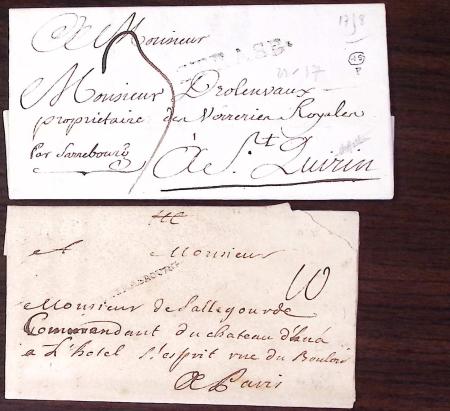 A Monsieur
Monsieur Drolenvaux
propriétaire des Verreries Royales
Par Sarrebourg
à St Quirin
22-17
A Monsieur
10
Monsieur de Sallegourde
Commandant du chateau d'ha
a L'hotel St esprit rue du Bouloir
A Paris